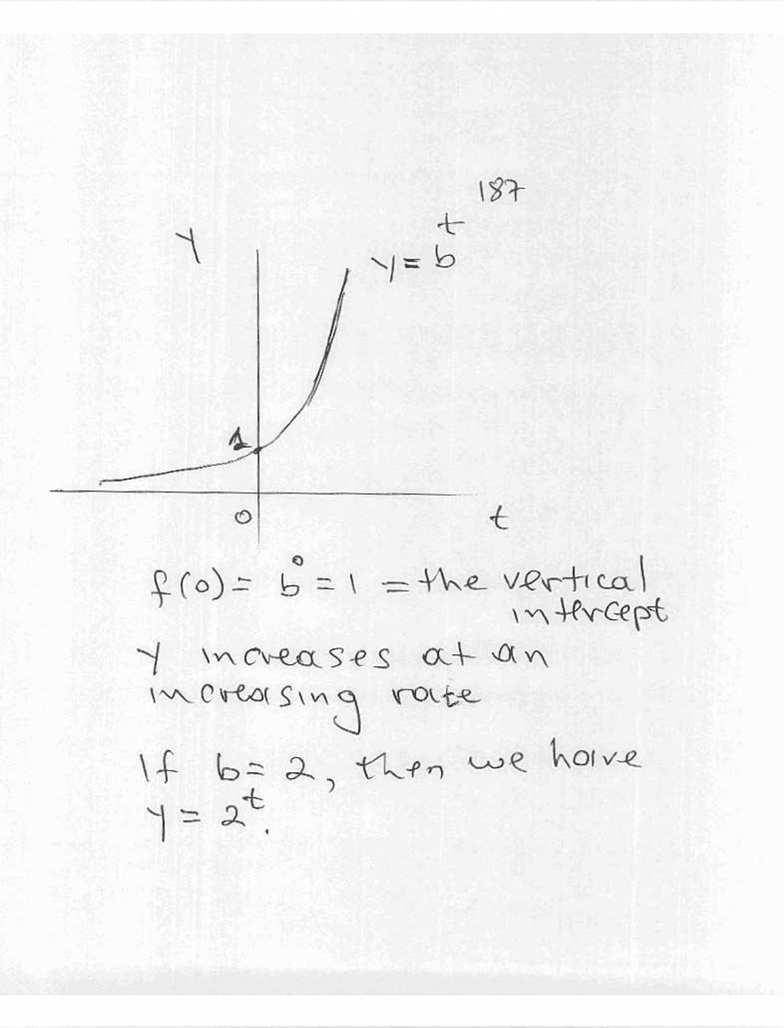 187
Y
y = b^t
1
0
t
f(0) = b^0 = 1 = the vertical
intercept
Y increases at an
increasing rate
If b = 2, then we have
Y = 2^t.